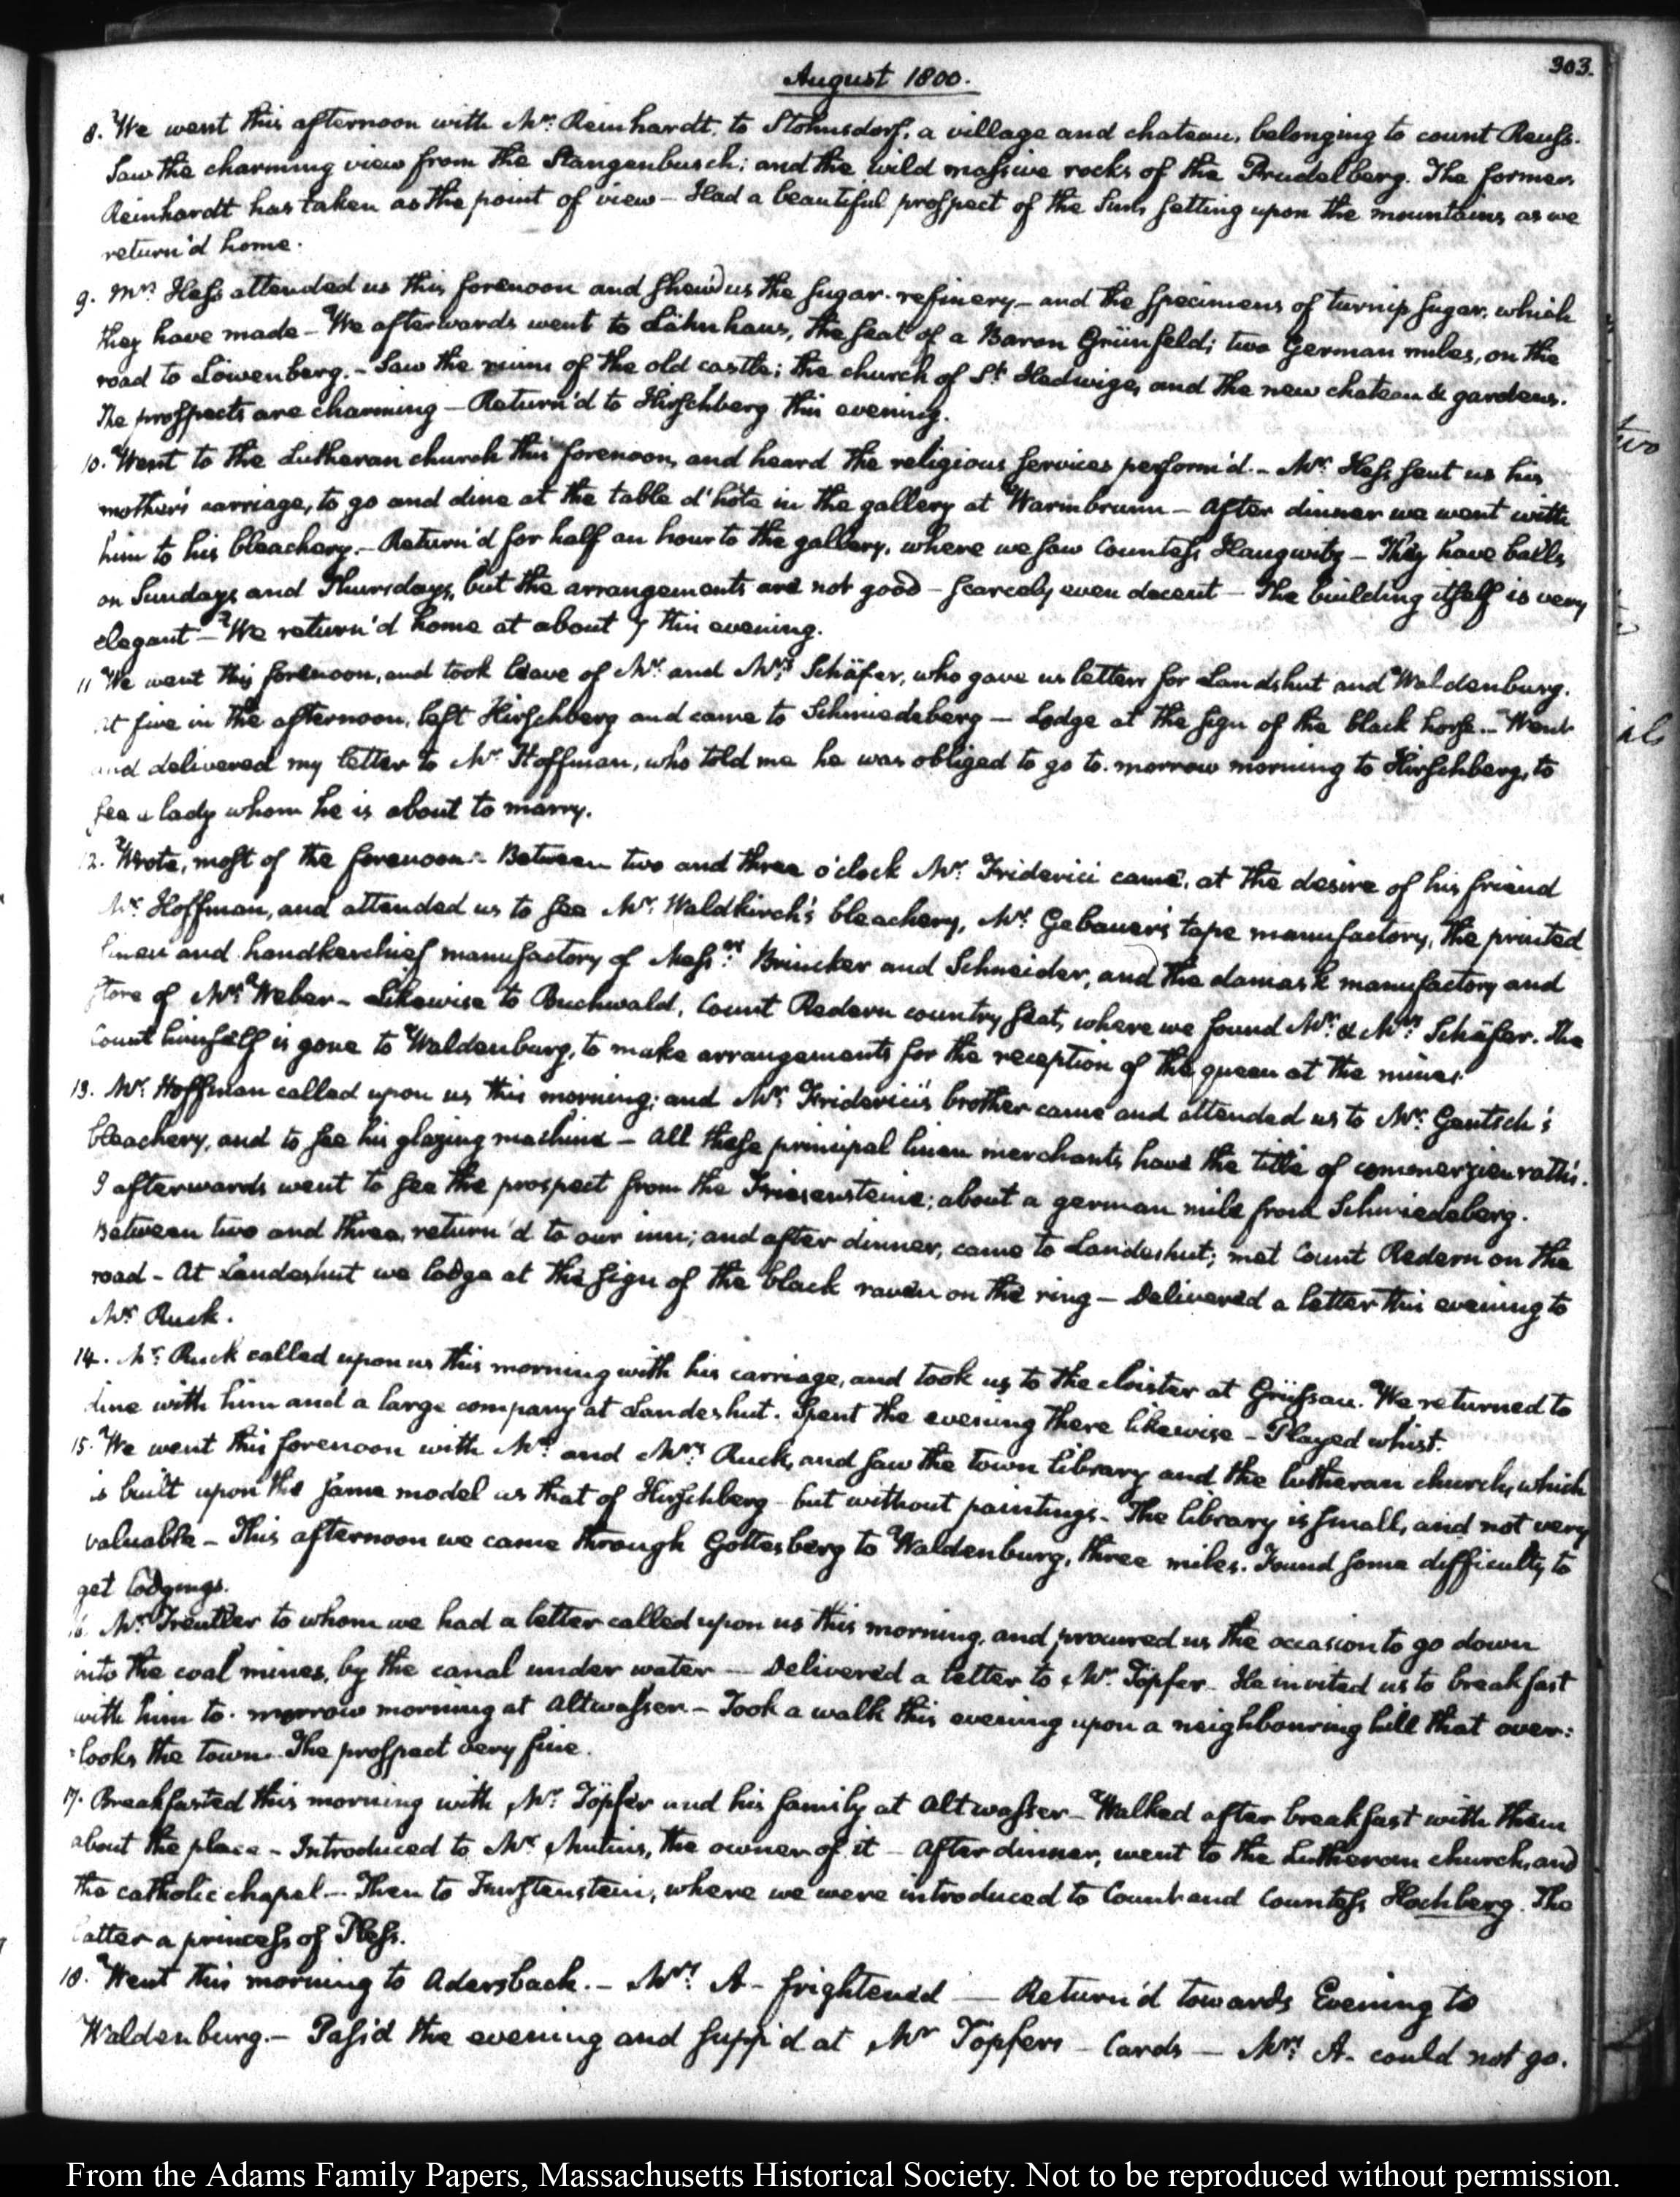 303.
August 1800.
8. We went this afternoon with Mr: Reinhardt, to Stohnsdorf, a village and chateau, belonging to count Reuss.
Saw the charming view from the Stangenbusch; and the wild massive rocks of the Prudelberg. The former
Reinhardt has taken as the point of view — Had a beautiful prospect of the Sun, setting upon the mountains as we
return'd home.
9. Mr: Hess attended us this forenoon and shew'd us the sugar-refinery — and the specimens of turnip sugar, which
they have made — We afterwards went to Lähnhaus, the seat of a Baron Grünfeld; two German miles, on the
road to Löwenberg. — Saw the ruins of the old castle; the church of St. Hedwige, and the new chateau & gardens.
The prospects are charming — Return'd to Hirschberg this evening.
10. Went to the Lutheran church this forenoon, and heard the religious services perform'd. — Mr: Hess sent us his
mother's carriage, to go and dine at the table d'hôte in the gallery at Warmbrunn — After dinner we went with
him to his bleachery. — Return'd for half an hour to the gallery, where we saw Countess Haugwitz — They have balls
on Sundays and Thursdays, but the arrangements are not good — scarcely even decent — The building itself is very
elegant — We return'd home at about 7 this evening.
11 We went this forenoon, and took leave of Mr: and Mrs: Schäfer, who gave us letters for Landshut and Waldenburg.
At five in the afternoon, left Hirschberg and came to Schmiedeberg — Lodge at the sign of the black horse. — Went
and delivered my letter to Mr: Hoffman, who told me he was obliged to go to-morrow morning to Hirschberg, to
see a lady whom he is about to marry.
12. Wrote, most of the forenoon. — Between two and three o'clock Mr: Friderici came, at the desire of his friend
Mr: Hoffman, and attended us to see Mr: Waldkirch's bleachery, Mr: Gebauer's tape manufactory, the printed
linen and handkerchief manufactory of Messrs: Brincker and Schneider, and the damask manufactory and
store of Mr: Weber — Likewise to Buchwald, Count Redern country seat, where we found Mr: & Mrs: Schäfer. The
Count himself is gone to Waldenburg, to make arrangements for the reception of the queen at the mines.
13. Mr: Hoffman called upon us this morning; and Mr: Friderici's brother came and attended us to Mr: Gentsch's
bleachery, and to see his glazing machine — All these principal linen merchants have the title of commerzienraths.
I afterwards went to see the prospect from the Friesensteine; about a german mile from Schmiedeberg.
Between two and three, return'd to our inn; and after dinner, came to Landeshut; met Count Redern on the
road — At Landeshut we lodge at the sign of the black raven on the ring — Delivered a letter this evening to
Mr: Ruck.
14. Mr: Ruck called upon us this morning with his carriage, and took us to the cloister at Grüssau. We returned to
dine with him and a large company at Landeshut. Spent the evening there likewise — Played whist.
15. We went this forenoon with Mr: and Mrs: Ruck, and saw the town library and the lutheran church, which
is built upon the same model as that of Hirschberg — but without paintings — The library is small, and not very
valuable — This afternoon we came through Gottesberg to Waldenburg, three miles. Found some difficulty to
get lodgings.
16. Mr: Treutler to whom we had a letter called upon us this morning, and procured us the occasion to go down
into the coal mines, by the canal under water — Delivered a letter to Mr: Töpfer — He invited us to breakfast
with him to-morrow morning at Altwasser — Took a walk this evening upon a neighbouring hill that over:
:looks the town. The prospect very fine.
17. Breakfasted this morning with Mr: Töpfer and his family at Altwasser — Walked after breakfast with them
about the place — Introduced to Mr: Mutius, the owner of it — After dinner, went to the Lutheran church, and
the catholic chapel — Then to Furstenstein, where we were introduced to Count and Countess Hochberg. The
latter a princess of Pless.
18. Went this morning to Adersbach. — Mrs: A— frightened — Return'd towards Evening to
Waldenburg. — Pass'd the evening and supp'd at Mr Töpfers — Cards — Mrs: A— could not go.
two
als
From the Adams Family Papers, Massachusetts Historical Society. Not to be reproduced without permission.